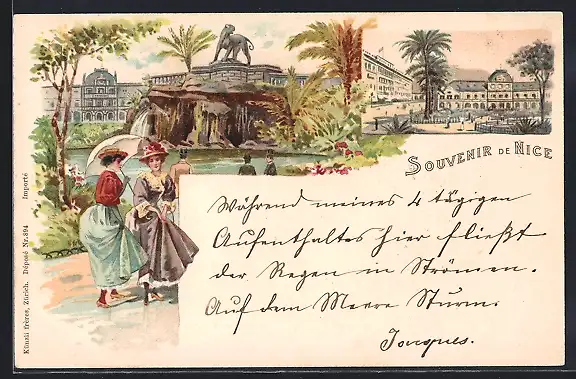 SOUVENIR DE NICE
Während meines 4 tägigen
Aufenthaltes hier fließt
der Regen in Strömen.
Auf dem Meere Sturm.
Jacques.
Künzli frères, Zürich. Déposé Nr. 894 Importé